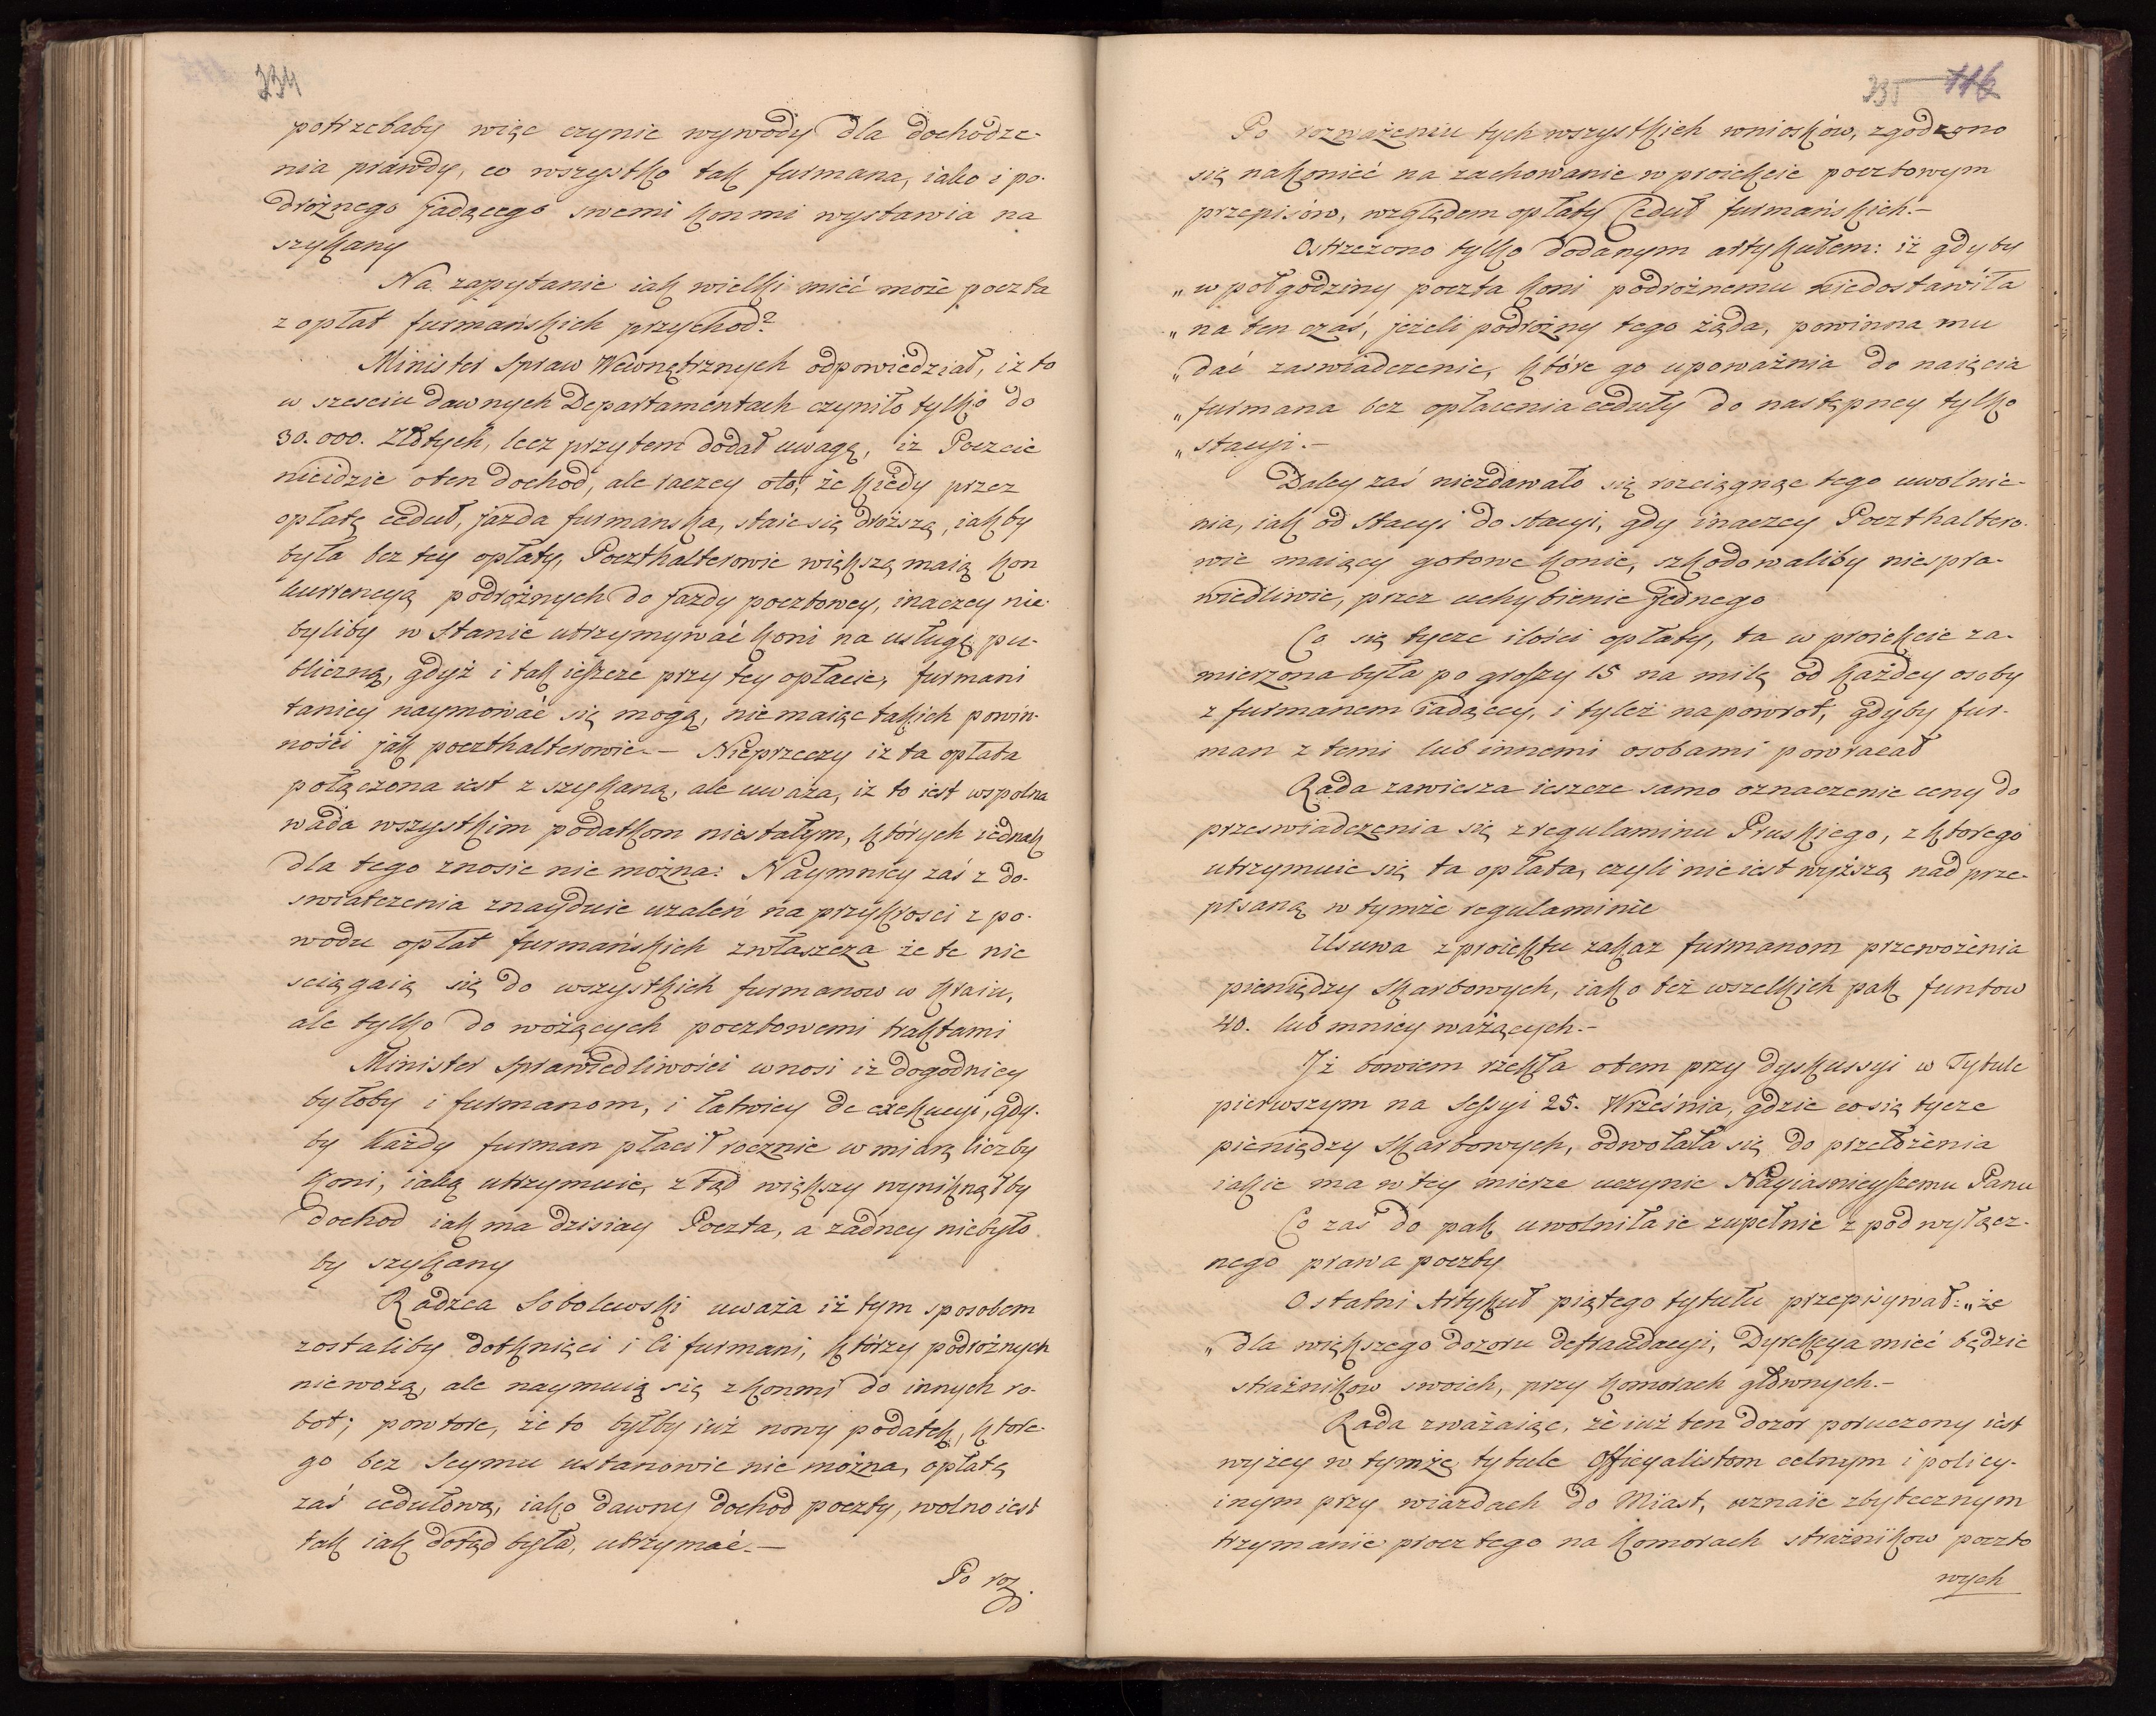 234
potrzebaby więc czynic wywody dla dochodze-
nia prawdy, co wszystko tak furmana, iako i po-
dróżnego jadącego swemi konmi wystawia na
szykany
Na zapytanie iak wielki mieć może poczta
z opłat furmańskich przychod?
Minister Spraw Wewnętrznych odpowiedział, iż to
w szesciu dawnych Departamentach czyniło tylko do
30.000. Złotych, lecz przytem dodał uwagę, iż Poczcie
nieidzie oten dochod, ale raczey oto, że kiedy przez
opłatę ceduł, jazda furmanska, staie się droższą, iakby
była bez tey opłaty, Poczthalterowie większą maią kon
kurrencyą podróżnych do jazdy pocztowey, inaczey nie-
byliby w stanie utrzymywać koni na usługę pu-
bliczną, gdyż i tak ieszcze przy tey opłacie, furmani
taniey naymować się mogą, nie maiąc takich powin-
ności jak poczthalterowie.— Nieprzeczy iż ta opłata
połączona iest z szykaną, ale uważa, iż to iest wspolna
wada wszystkim podatkom niestałym, których iednak
dla tego znosic nie można: Naymniey zaś z do-
swiatczenia znayduie uzaleń na przykrosci z po-
wodu opłat furmańskich zwłaszcza że te nie
sciągaią się do wszystkich furmanow w kraiu,
ale tylko do wożących pocztowemi traktami
Minister Sprawiedliwości wnosi iż dogodniey
byłoby i furmanom, i łatwiey do exekucyi, gdy-
by każdy furman płacił rocznie w miarę liczby
koni, iaką utrzymuie, ztąd większy wyniknąłby
dochod iak ma dzisiay Poczta, a żadney niebyło
by szykany
Radzca Sobolewski uważa iż tym sposobem
zostaliby dotknięci i Ci furmani, którzy podrożnych
niewożą, ale naymuią się z konmi do innych ro-
bot; powtore, że to byłby iuż nowy podatek, ktore-
go bez Seymu ustanowic nie można, opłatę
zaś cedułową, iako dawny dochod poczty, wolno iest
tak iak dotąd była, utrzymać.—
Po roz
335 116
Po rozważeniu tych wszystkich wniosków, zgodzono
się nakonieć na zachowanie w proiekcie pocztowym
przepisów, względem opłaty Ceduł furmańskich.—
Ostrzeżono tylko dodanym artykułem: iż gdyby
„w poł godziny poczta koni podrożnemu niedostawiła
„na ten czaś, jeżeli podrożny tego żąda, powinna mu
„dać zaswiadczenie, które go upoważnia do naięcia
„furmana bez opłacenia ceduły do następney tylko
„stacyi.—
Daley zaś niezdawało się rozciągnąc tego uwolnie-
nia, iak od Stacyi do stacyi, gdy inaczey Poczthaltero-
wie maiący gotowe konie, szkodowaliby niespra-
wiedliwie, przez uchybienie Jednego
Co się tycze ilości opłaty, ta w proiekcie za-
mierzona była po groszy 15 na milę od każdey osoby
z furmanem iadącey, i tyleż napowrot, gdyby fur-
man z temi lub innemi osobami powracał
Rada zawiesza ieszcze samo oznaczenie ceny do
przeswiadczenia się z regulaminu Pruskiego, z ktorego
utrzymuie się ta opłata, czyli nie iest wyższą nad prze-
pisaną w tymże regulaminie
Usuwa z proiektu zakaz furmanom przewożenia
pieniędzy Skarbowych, iako też wszelkich pak funtow
40. lub mniey ważących.—
Jż bowiem rzekła otem przy dyskussyi w Tytule
pierwszym na Sessyi 25. Września, gdzie co się tycze
pieniędzy Skarbowych, odwołała się do przełożenia
iakie ma w tey mierze uczynic Nayiasnieyszemu Panu
Co zaś do pak uwolniła ie zupełnie z pod wyłącz-
nego prawa poczty
Ostatni Artykuł piątego tytułu przepisywał: „że
„dla większego dozoru defraudacyi, Dyrekcya mieć będzie
strażnikow swoich, przy komorach głownych.—
Rada zważaiąc, że iuż ten dozor poruczony iest
wyżey w tymże tytule Officyalistom celnym i policy-
inym przy wiazdach do Miast, uznaie zbytecznym
trzymanie procz tego na komorach strażnikow poczto
wych